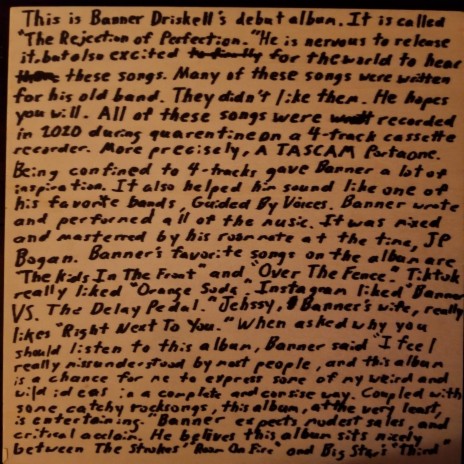 This is Banner Driskell's debut album. It is called
"The Rejection of Perfection." He is nervous to release
it, but also excited to finally for the world to hear
these songs. Many of these songs were written
for his old band. They didn't like them. He hopes
you will. All of these songs were recorded
in 2020 during quarentine on a 4-track cassette
recorder. More precisely, A TASCAM Portaone.
Being confined to 4-tracks gave Banner a lot of
inspiration. It also helped him sound like one of
his favorite bands, Guided By Voices. Banner wrote
and performed all of the music. It was mixed
and masterred by his roommate at the time, JP
Bogan. Banner's favorite songs on the album are
"The Kids In The Front" and "Over The Fence." Tiktok
really liked "Orange Soda". Instagram liked "Banner
VS. The Delay Pedal." Jehssy, Banner's wife, really
likes "Right Next To You." When asked why you
should listen to this album, Banner said "I feel
really missunderstood by most people, and this album
is a chance for me to express some of my weird and
wild ideas in a complete and consise way. Coupled with
some catchy rocksongs, this album, at the very least,
is entertaining." Banner expects modest sales, and
critical acclaim. He belives this album sits nicely
between The Strokes' "Room On Fire" and Big Star's "Third"